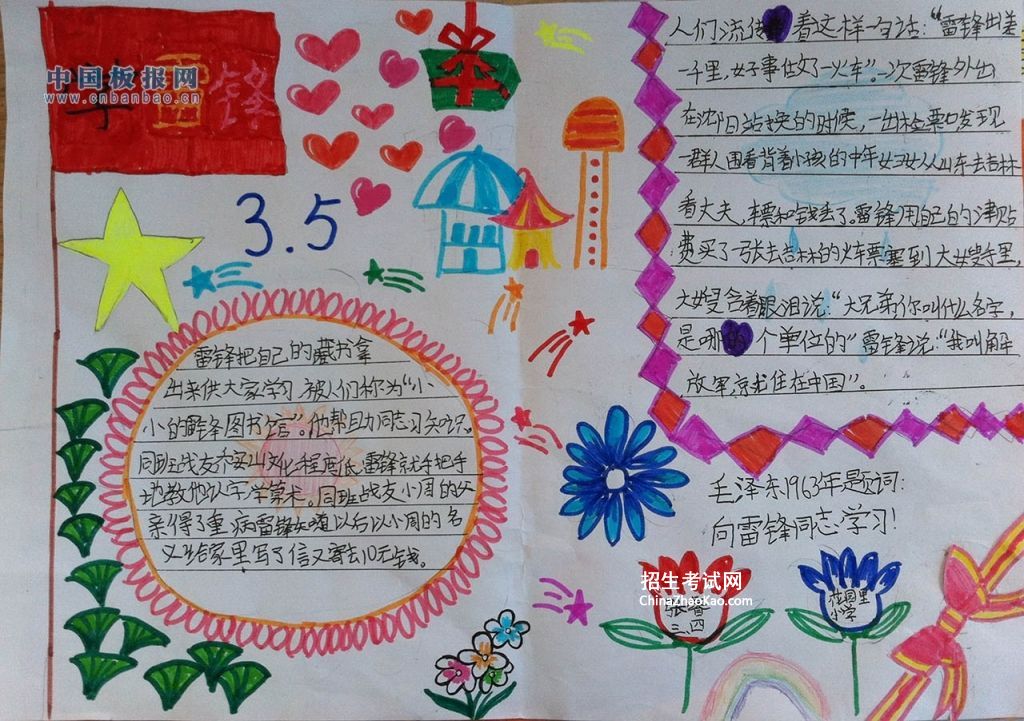 中国板报网
www.cnbanbao.cn
学雷锋
3.5
雷锋把自己的藏书拿
出来供大家学习,被人们称为“小
小的雷锋图书馆”。他帮助同志习知识。
同班战友乔安山文化程度低,雷锋就手把手
地教他认字,学算术。同班战友小周的父
亲得了重病雷锋知道以后以小周的名
义给家里写了信又寄去10元钱。
人们流传着这样一句话:“雷锋出差
一千里,好事做了一火车”。次雷锋外出
在沈阳站换的时候,一出检票口发现
一群人围着背着小孩的中年妇女从山东去吉林
看丈夫,车票和钱丢了。雷锋用自己的津贴
费买了一张去吉林的火车票塞到大嫂手里,
大嫂含着眼泪说:“大兄弟你叫什么名字,
是哪个单位的”雷锋说:“我叫解
放军,就住在中国”。
毛泽东1963年题词:
向雷锋同志学习!
招生考试网
ChinaZhaoKao.com
三、四
花园里
小学